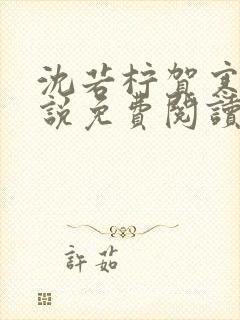 沈若柠贺寒
說免費閱讀
許茹